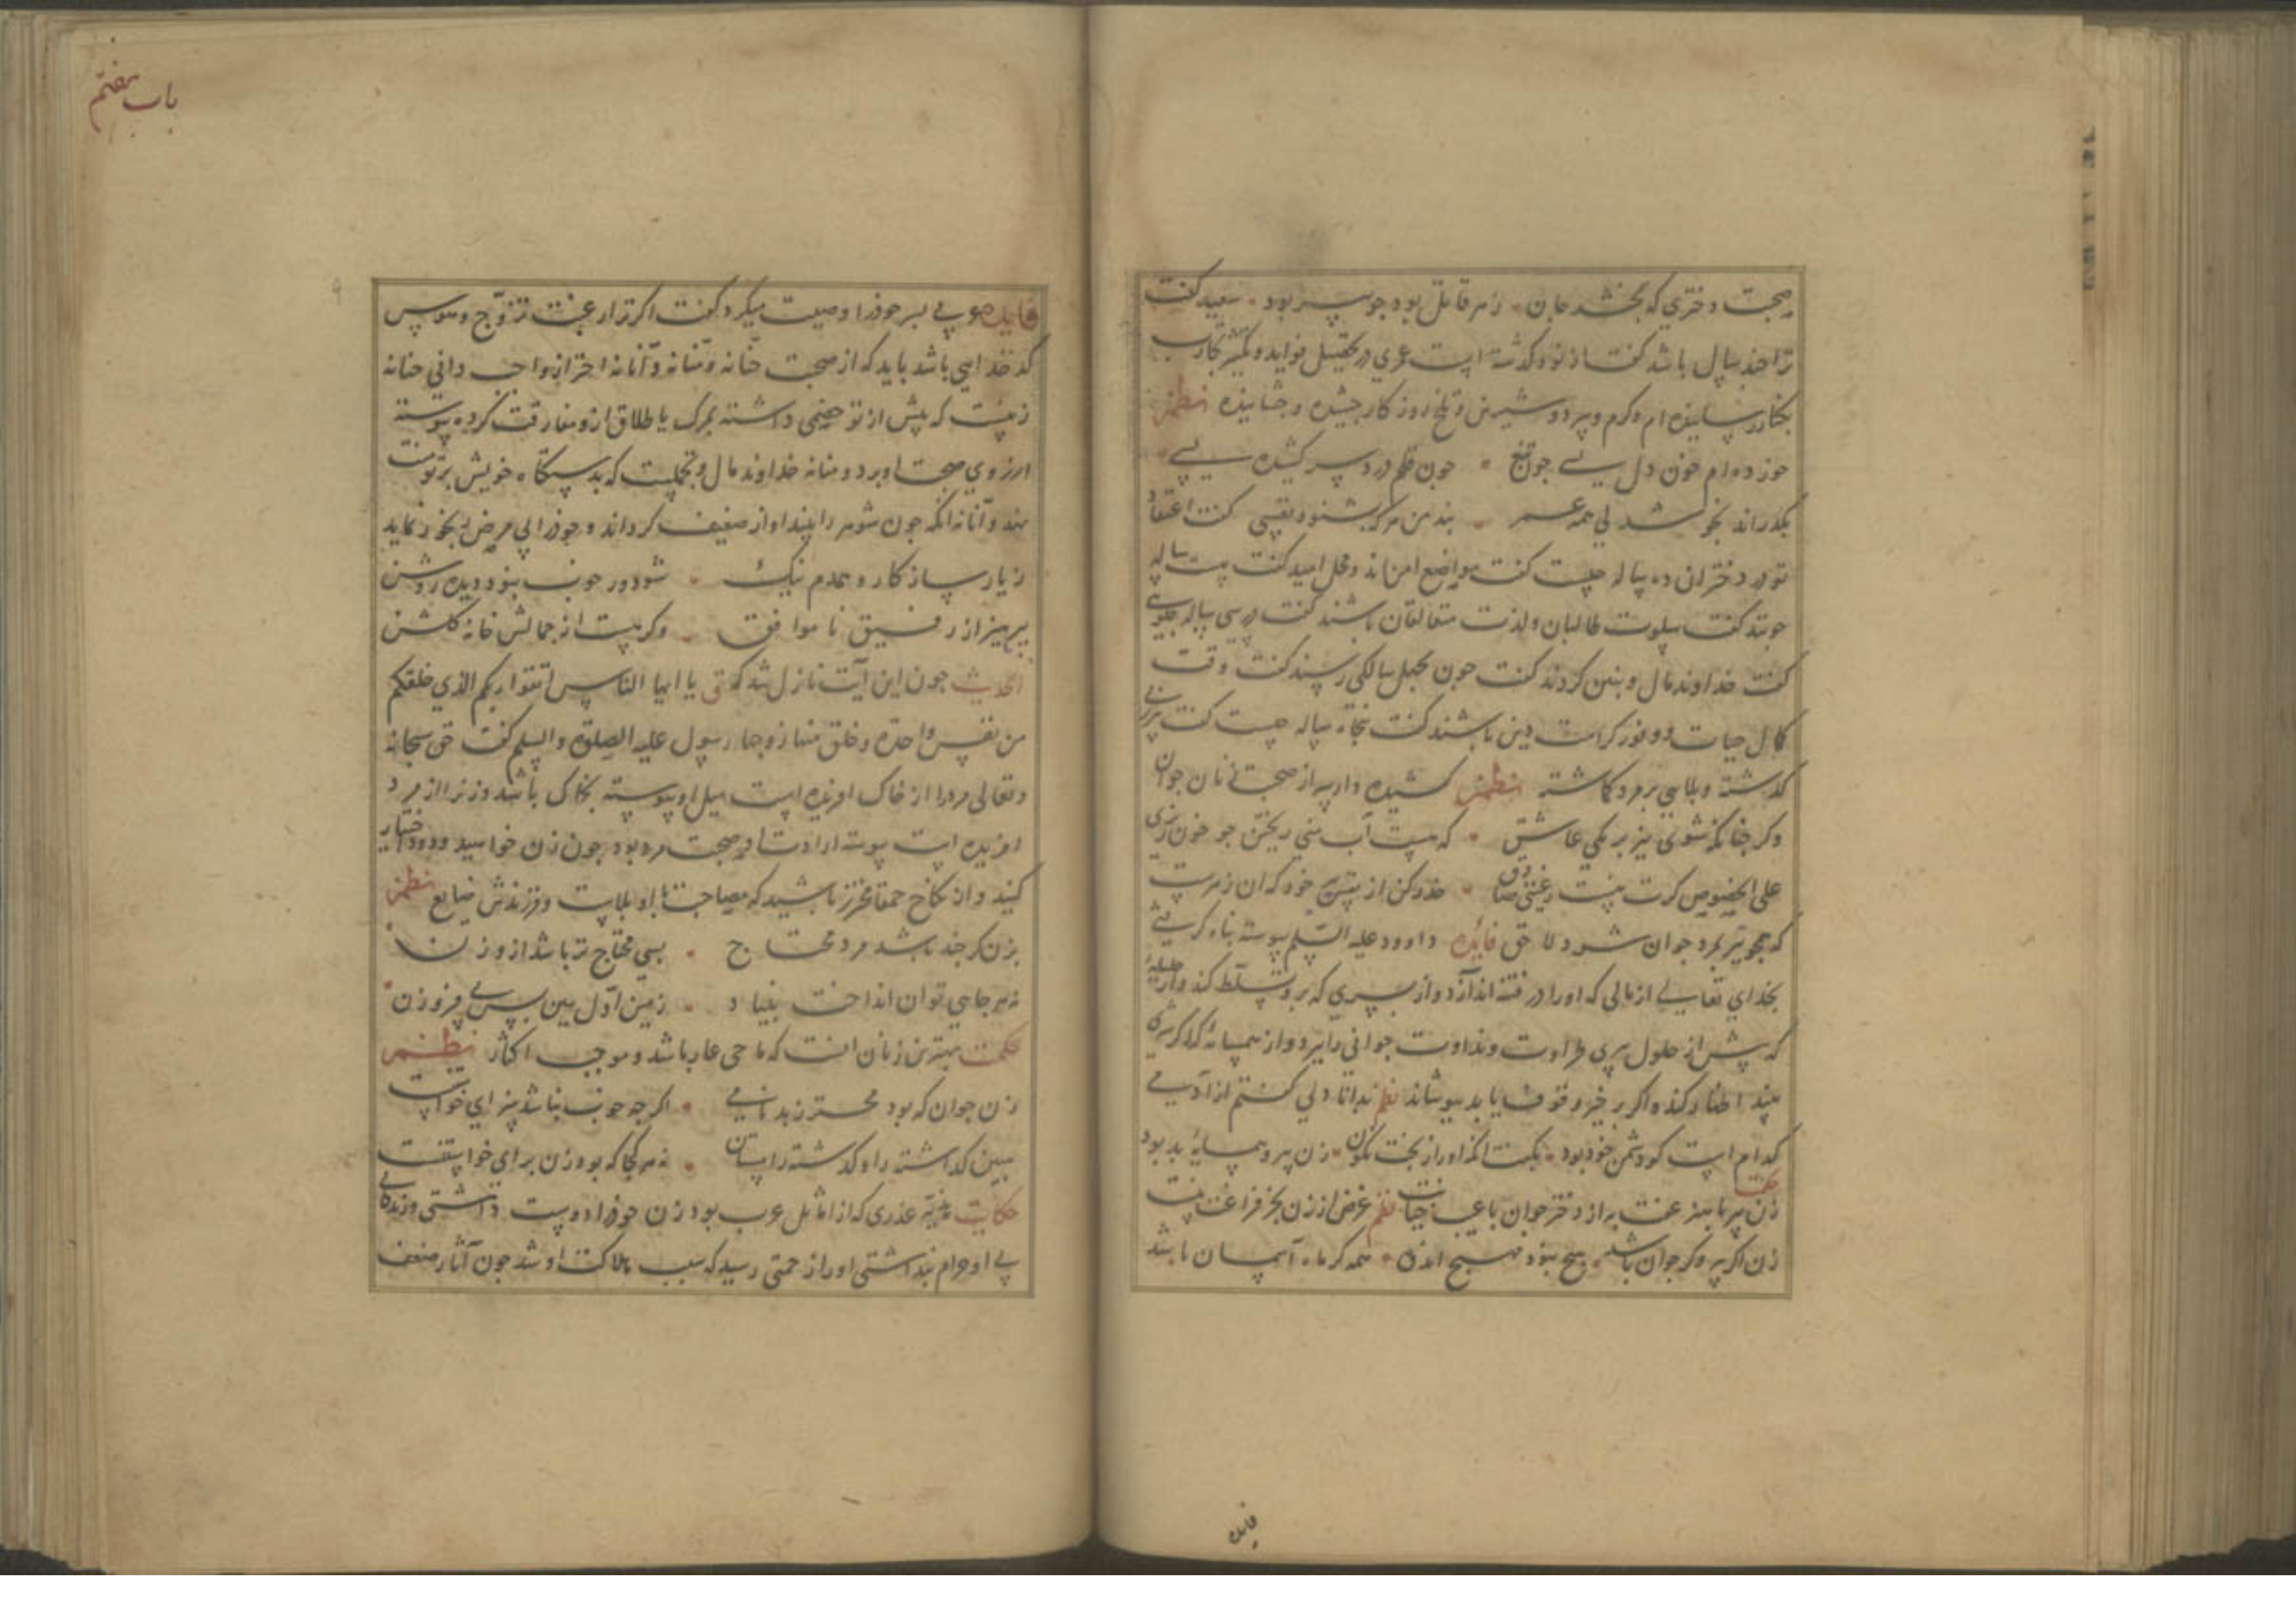 صحبت دختری که بخشد جان زهر قاتل بود جو پیر بود سعید گفت
ترا جند سال باشد گفت از نود گذشته است عمری در تحصیل فواید و تجارب
بکنار رسانیده ام و گرم و سرد و شیرین و تلخ روزگار جشیده و جشانیده نظم
خورده ام خون دل بسی جون تیغ جون قلم درد سر کشیده بسی
بگذراند بخوشدلی همه عمر پند من هر که بشنود نفسی گفت اعتقاد
تو در دختران ده ساله جیست گفت مواضع امن اند و محل امید گفت بیست ساله
جونند گفت سلوت طالبان و لذت باشند گفت در سی ساله جکویی
گفت خداوند مال و بنین گردند گفت جون بچهل سالگی رسند گفت وقت
کمال حیات و نور کرامت دین باشند گفت پنجاه ساله جیست گفت پیرزنی
گذشته و بلایی بر مرد گماشته نظم کشیده دار سر از صحبت زنان جوان
وگر جنانکه شوی نیز بر یکی عاشق که هست آب منی ریختن جو خون رزی
علی الخصوص گرت نیست رغبتی صادق حذر کن از خود که آن زهرست
که همجو تیر بمرد جوان شود لاحق فائده داوود علیه السلم پیوسته پناه گرفتی
بخدای تعالی از مالی که او را در فتنه اندازد و از پسری که برو تسلط کند و از حلیله
که پیش از حلول پیری طراوت و نداوت جوانی را ببرد و از همسایه که اگر شری
بیند اظهار کند و اگر بر خیر وقوف یابد بپوشاند نظم بدانا دلی گفتم از آدمی
کدام است کو دشمن خود بود بگفت آنکه او را از بخت نگون زن پیر و همسایه بد بود
حکمت
زن پیر با هنر عفت به از دختر جوان با عیب خیانت نظم غرض از زن بجز فراغت نیست
زن اگر پیر و گر جوان باشد هیج نبود همه گر ماه آسمان باشد
فایده
باب هفتم
فایده صوفیی پسر خود را وصیت میکرد گفت اگر ترا رغبت تزوج و هوس
کدخدایی باشد باید که از صحبت حنانه و منانه و انانه احتراز واجب دانی حنانه
زنیست که پیش از تو خصمی داشته بمرگ یا طلاق ازو مفارقت کرده پیوسته
ارزوی صحبت او برد و منانه خداوند مال و تجملیست که بدستگاه خویش بر تو منت
نهد و انانه آنکه جون شوهر را بیند آواز ضعیف گرداند و خود را بی مرض رنجور نماید
ز یار سازگار و همدم نیک شود ور خوب نبود دیده روشن
بپرهیز از رفیق ناموافق وگر هست از جمالش خانه گلشن
الحدیث جون این آیت نازل شد که یا ایها الناس اتقوا ربکم الذی خلقکم
من نفس واحدة و خلق منها زوجها رسول علیه الصلوة والسلم گفت حق سبحانه
و تعالی مرد را از خاک افریده است میل او پیوسته بخاک باشد و زن را از مرد
افریده است پیوسته ارادت او صحبت مرد بود جون زن خواهید ودود اختیار
کنید و از نکاح حمقا محترز باشید که مصاحبت با او بلاست و فرزندش ضایع نظم
بزن گر جند باشد مرد محتاج بسی محتاج تر باشد ازو زن
نه هر جایی توان انداخت بنیاد زمین اول ببین پس پی فرو زن
حکمت بهترین زنان آنست که ماحی عار باشد و موجب اکثار نظم
زن جوان که بود محترز بدنامی اگرجه خوب نباشد سزای خواستنست
ببین گذاشته را و گذشته را بستان نه هر کجا که بود زن برای خواستنست
حکایت عذری که از اماثل عرب بود زن خود را دوست داشتی و زندگانی
بی او حرام پنداشتی او را زحمتی رسید که سبب هلاکت او شد جون آثار ضعف